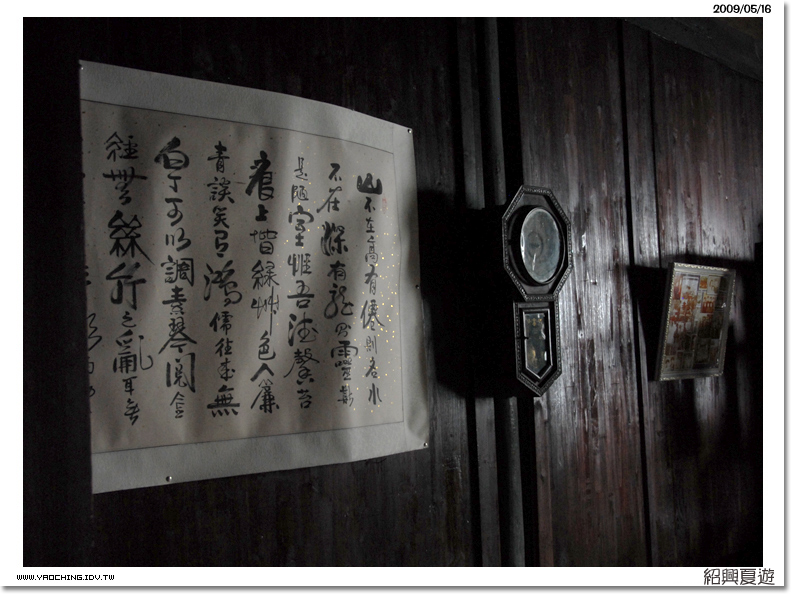 2009/05/16
山不在高有僊則名水
不在深有龍則靈斯
是陋室惟吾德馨苔
痕上階綠艸色入簾
青談笑有鴻儒往來無
白丁可以調素琴閱金
經無絲竹之亂耳無
WWW.YAOCHING.IDV.TW
紹興夏遊